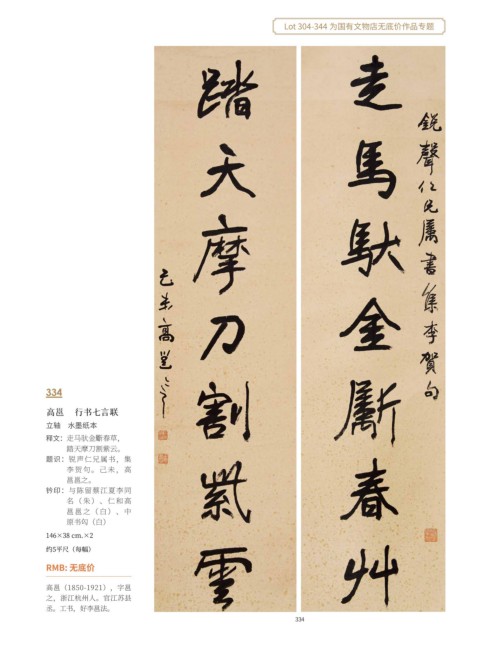 Lot 304-344 为国有文物店无底价作品专题
銳聲仁兄属書集李賀句
走馬馱金斸春艸
踏天摩刀割紫雲
己未高邕
334
高邕 行书七言联
立轴 水墨纸本
释文：走马驮金斸春草，
踏天摩刀割紫云。
题识：锐声仁兄属书，集
李贺句。己未，高
邕邕之。
钤印：与陈留蔡江夏李同
名（朱）、仁和高
邕邕之（白）、中
原书丐（白）
146×38 cm.×2
约5平尺（每幅）
RMB: 无底价
高邕（1850-1921），字邕
之，浙江杭州人。官江苏县
丞。工书，好李邕法。
334